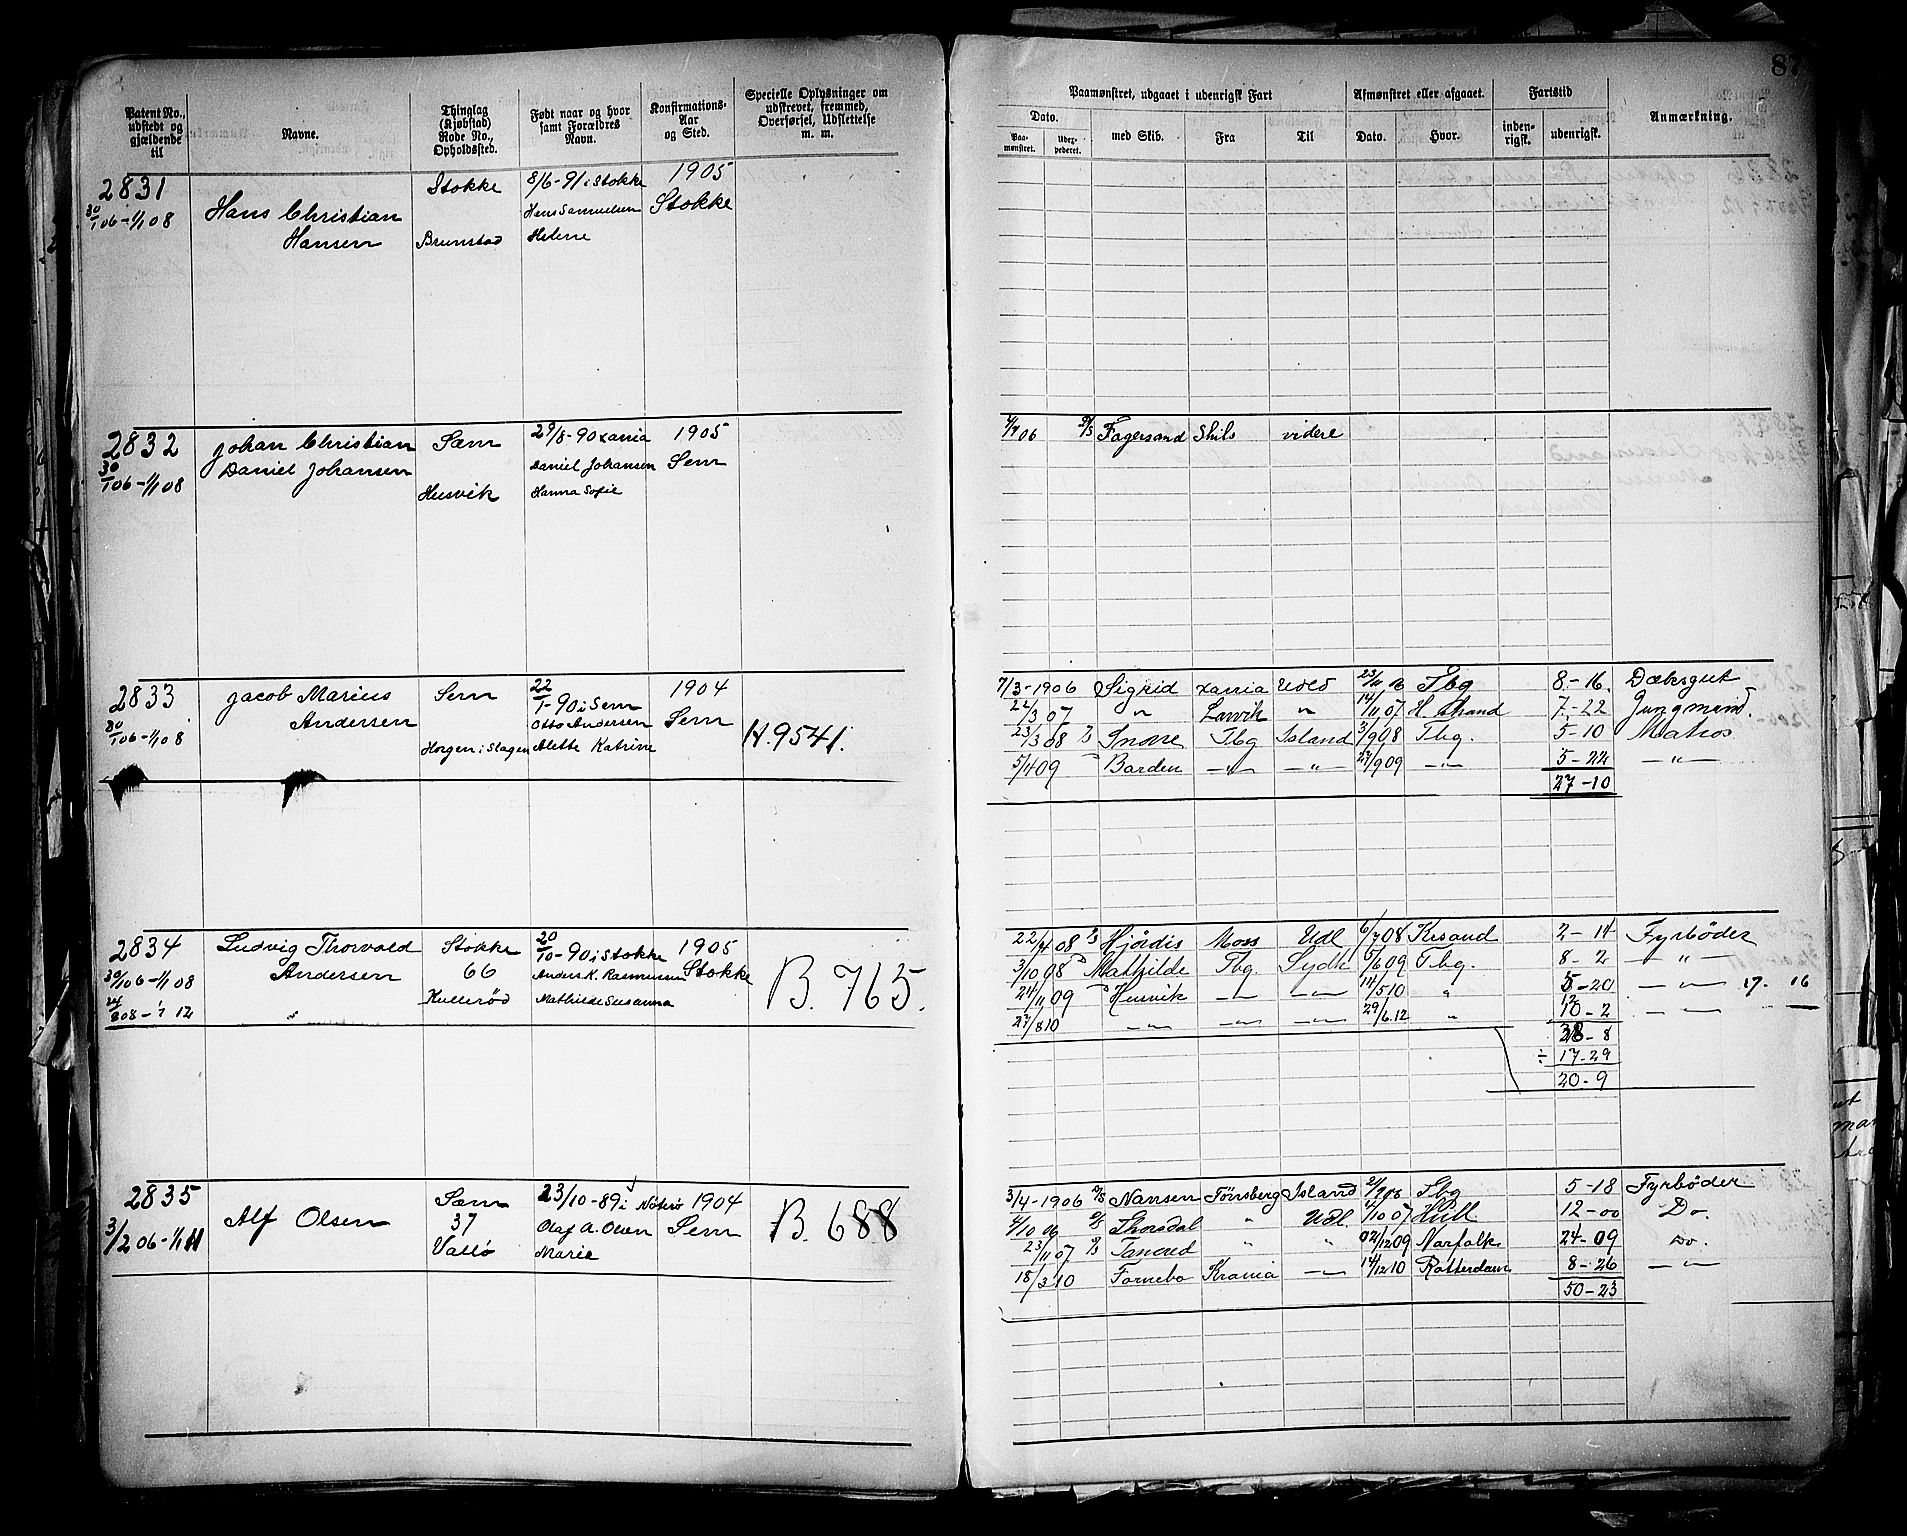 87
Patent No., udstedt og gjældende til
Navne.
Thinglag (Kjøbstad) Rode No., Opholdssted.
Født naar og hvor samt Forældres Navn.
Konfirmations-Aar og Sted.
Specielle Oplysninger om udskrevet, fremmed, Overførsel, Udslettelse m. m.
Paamønstret, udgaaet i udenrigsk Fart
Afmønstret eller afgaaet.
Fartstid
Anmærkning.
Dato.
Paa-mønstret.
med Skib.
Fra
Til
Dato.
Hvor.
inden-rigsk.
udenrigsk.
2831 Stokke 8/6-91 i Stokke 1905
30/1 06-1/1 08 Hans Christian Hans Samuelsen Stokke
Hansen Brunstad Helene
2832 Johan Christian Sæm 29/8-90 Xania 1905
30/1 06-1/1 08 Daniel Johansen Daniel Johansen Sem
Husvik Hanna Sofie
06 Fagersand Shils videre
2833 Jacob Marius Sem 22/1-90 i Sem 1904
30/1 06-1/1 08 Andersen Otto Andersen Sem
Horgen i Slagen Alette Katrine H. 9541.
7/3-1906 Sigrid Xania Udld Tbg 8-16. Dæksgut
22/3 07 " Larvik " 14/11 07 H. strand 7-22 Jungmand.
23/3 08 Snorre Tbg Island 3/9 08 Tbg. 5-10 Matros
5/4 09 Barden —"— —"— 27/9 09 —"— 5-22 —"—
27-10
2834 Ludvig Thorvald Stokke 20/10-90 i Stokke 1905
30/1 06-1/1 08 Andersen 66 Anders K. Rasmussen Stokke
24/8 08-1/1 12 Kullerød Mathilde Susanna B. 765.
22/4 08 Hjørdis Moss Udl 6/7 08 Krsand 2-14 Fyrbøder
3/10 08 Mathilde Tbg Sydh 5/6 09 Tbg. 8-2 —"—
24/11 09 Husvik —"— —"— 14/5 10 " 5-20 —"— 17. 16
27/8 10 —"— —"— —"— 29/6.12 " 10-2 —"—
38-8
÷ 17-29
20-9
2835 Sæm 23/10-89 i Nøterø 1904
Alf Olsen 37 Olaf A. Olsen Sem B. 688
3/2 06-1/1 11 Valø Marie
3/4-1906 Nansen Tønsberg Island 21/9 06 Tbg 5-18 Fyrbøder
4/10 06 Thorsdal " Udl. 4/10 07 Hull 12-00 Do.
23/11 07 Tancred " " 02/12 09 Norfolk 24-09 Do.
18/3 10 Fornebo Krania —"— 14/12 10 Rotterdam 8-26 —"—
50-23